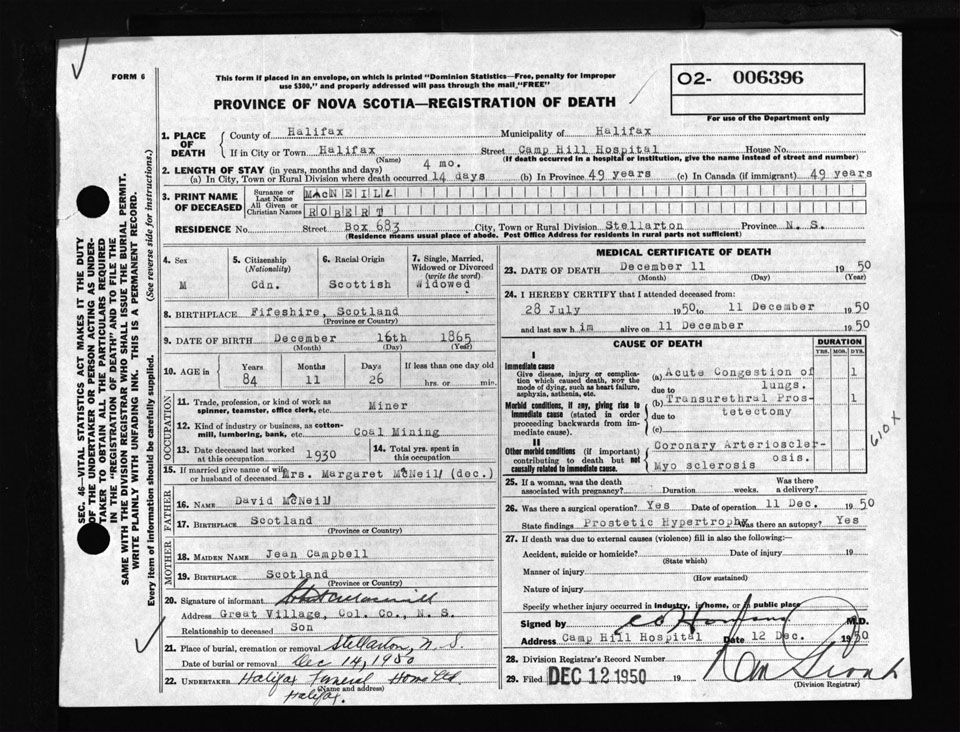 FORM 6
This form if placed in an envelope, on which is printed "Dominion Statistics—Free, penalty for improper
use $300," and properly addressed will pass through the mail "FREE"
PROVINCE OF NOVA SCOTIA—REGISTRATION OF DEATH
O2- 006396
For use of the Department only
SEC. 46—VITAL STATISTICS ACT MAKES IT THE DUTY
OF THE UNDERTAKER OR PERSON ACTING AS UNDER-
TAKER TO OBTAIN ALL THE PARTICULARS REQUIRED
IN THE "REGISTRATION OF DEATH" AND TO FILE THE
SAME WITH THE DIVISION REGISTRAR WHO SHALL ISSUE THE BURIAL PERMIT.
WRITE PLAINLY WITH UNFADING INK. THIS IS A PERMANENT RECORD.
Every item of information should be carefully supplied. (See reverse side for instructions.)
1. PLACE OF DEATH County of Halifax Municipality of Halifax
If in City or Town Halifax Street Camp Hill Hospital House No.
(Name) (If death occurred in a hospital or institution, give the name instead of street and number)
2. LENGTH OF STAY (in years, months and days) 4 mo.
(a) In City, Town or Rural Division where death occurred 14 days (b) In Province 49 years (c) In Canada (if immigrant) 49 years
3. PRINT NAME OF DECEASED Surname or Last Name MACNEILL
All Given or Christian Names ROBERT
RESIDENCE No. Street Box 683 City, Town or Rural Division Stellarton Province N. S.
(Residence means usual place of abode. Post Office Address for residents in rural parts not sufficient)
4. Sex M
5. Citizenship (Nationality) Cdn.
6. Racial Origin Scottish
7. Single, Married, Widowed or Divorced (write the word) Widowed
8. BIRTHPLACE Fifeshire, Scotland
(Province or Country)
9. DATE OF BIRTH December 16th 1865
(Month) (Day) (Year)
10. AGE in Years 84 Months 11 Days 26 If less than one day old hrs. or min.
OCCUPATION
11. Trade, profession or kind of work as spinner, teamster, office clerk, etc. Miner
12. Kind of industry or business, as cotton-mill, lumbering, bank, etc. Coal Mining
13. Date deceased last worked at this occupation 1930
14. Total yrs. spent in this occupation
15. If married give name of wife or husband of deceased Mrs. Margaret McNeill (dec.)
FATHER
16. Name David McNeill
17. Birthplace Scotland
(Province or Country)
MOTHER
18. Maiden Name Jean Campbell
19. Birthplace Scotland
(Province or Country)
20. Signature of informant
Address Great Village, Col. Co., N. S.
Relationship to deceased Son
21. Place of burial, cremation or removal Stellarton, N. S.
Date of burial or removal Dec 14, 1950
22. Undertaker Halifax Funeral Home Ltd.
(Name and address)
Halifax.
MEDICAL CERTIFICATE OF DEATH
23. DATE OF DEATH December 11 1950
(Month) (Day) (Year)
24. I HEREBY CERTIFY that I attended deceased from:
28 July 1950 to 11 December 1950
and last saw him alive on 11 December 1950
CAUSE OF DEATH
DURATION
YRS. MOS. DYS.
I
Immediate cause
Give disease, injury or complication which caused death, NOT the mode of dying, such as heart failure, asphyxia, asthenia, etc.
(a) Acute Congestion of lungs. 1
due to
Morbid conditions, if any, giving rise to immediate cause (stated in order proceeding backwards from immediate cause).
(b) Transurethral Prostetectomy 1
due to
(c)
II
Other morbid conditions (if important) contributing to death but not causally related to immediate cause.
Coronary Arteriosclerosis.
Myo sclerosis
610X
25. If a woman, was the death associated with pregnancy? Duration weeks. Was there a delivery?
26. Was there a surgical operation? Yes Date of operation 11 Dec. 1950
State findings Prostetic Hypertrophy Was there an autopsy? Yes
27. If death was due to external causes (violence) fill in also the following:—
Accident, suicide or homicide? Date of injury 19
(State which)
Manner of injury
(How sustained)
Nature of injury
Specify whether injury occurred in industry, in home, or in public place
Signed by M.D.
Address Camp Hill Hospital Date 12 Dec. 1950
28. Division Registrar's Record Number
29. Filed DEC 12 1950 19
(Division Registrar)